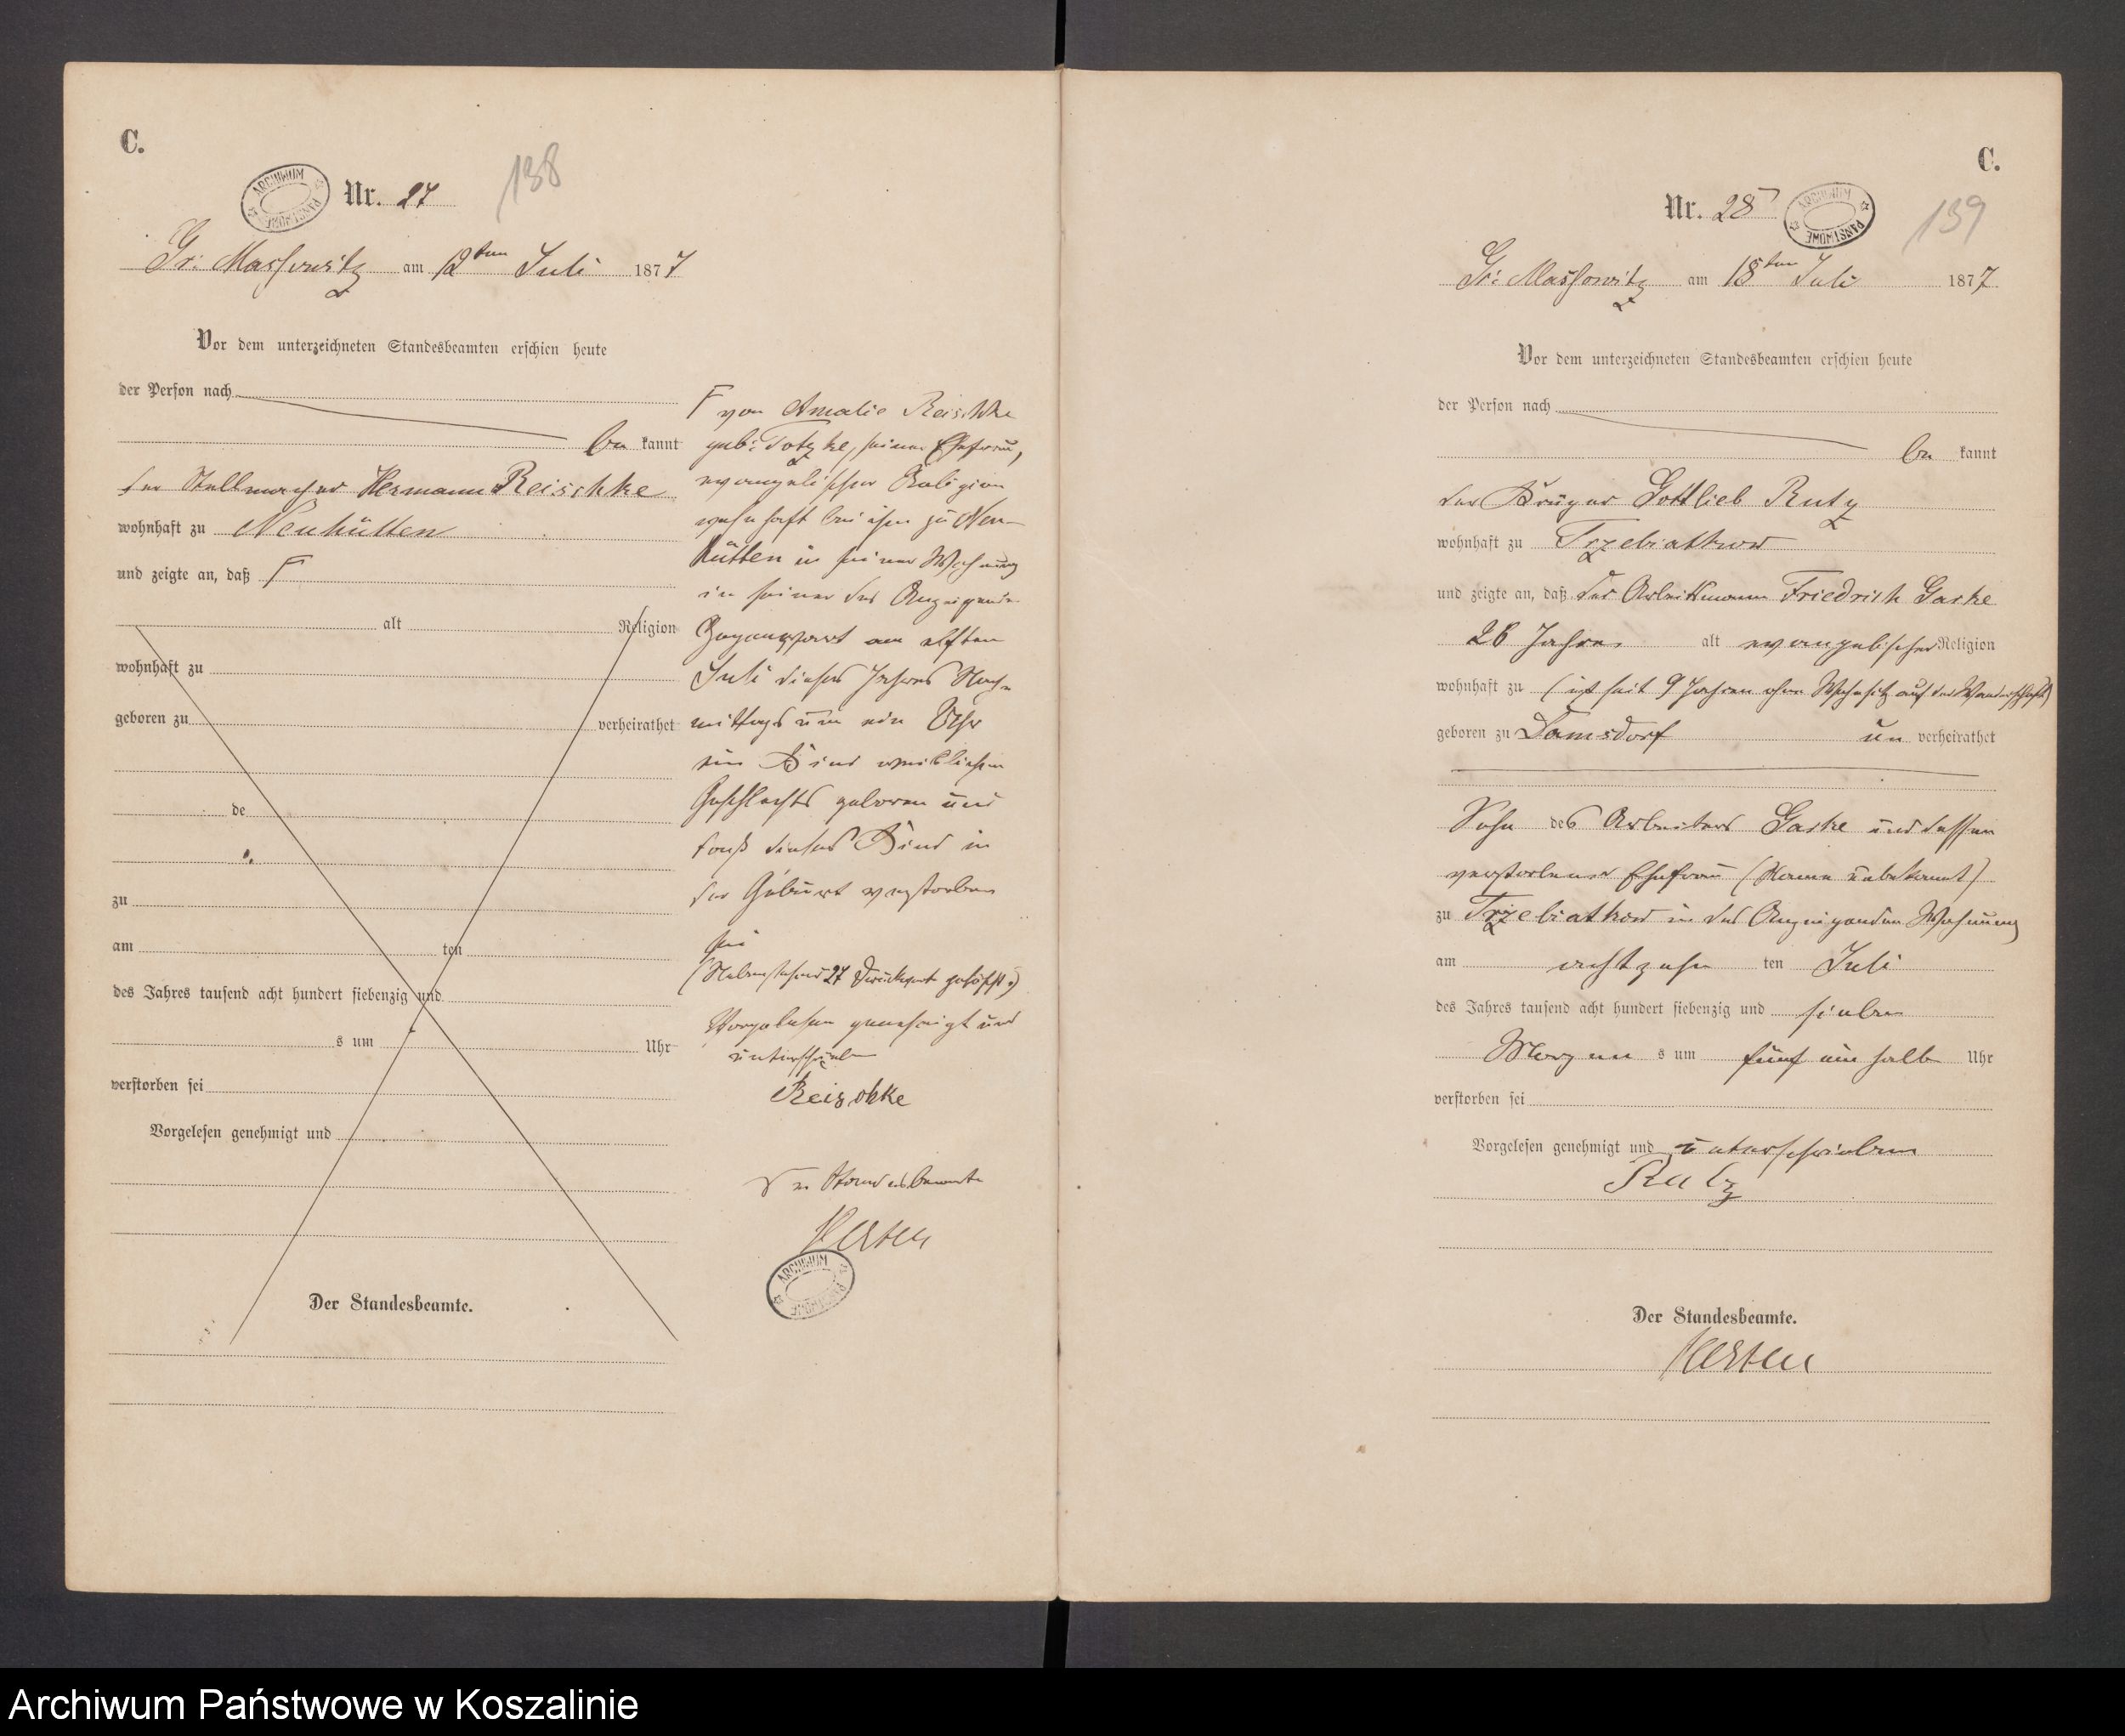 C.
Nr. 27
138
ARCHIWUM PAŃSTWOWE
Gr: Massowitz am 12ten Juli 1877
Vor dem unterzeichneten Standesbeamten erschien heute
der Person nach
be kannt
der Stellmacher Hermann Reischke
wohnhaft zu Neuhütten
und zeigte an, daß
alt Religion
wohnhaft zu
geboren zu verheirathet
de
zu
am ten
des Jahres tausend acht hundert siebenzig und
s um Uhr
verstorben sei
Vorgelesen genehmigt und
Der Standesbeamte.
von Amalie Reischke
geb: Totzke, seiner Ehefrau,
evangelischer Religion
wohnhaft bei ihm zu Neu-
hütten in seiner Wohnung
in seiner des Anzeigenden
Gegenwart am elften
Juli dieses Jahres Nach-
mittags um ein Uhr
ein Kind weiblichen
Geschlechts geboren und
daß dieses Kind in
der Geburt verstorben
sei
(Nebenstehend 27 Druckworte gelöscht.)
Vorgelesen genehmigt und
unterschrieben
Reischke
Der Standesbeamte
ARCHIWUM PAŃSTWOWE
C.
Nr. 28
ARCHIWUM PAŃSTWOWE
139
Gr: Massowitz am 18ten Juli 1877
Vor dem unterzeichneten Standesbeamten erschien heute
der Person nach
be kannt
der Krüger Gottlieb Rutz
wohnhaft zu Trzebiatkow
und zeigte an, daß der Arbeitsmann Friedrich Garke
26 Jahre alt evangelischer Religion
wohnhaft zu (ist seit 9 Jahren ohne Wohnsitz auf der Wanderschaft)
geboren zu Damsdorf un verheirathet
Sohn des Arbeiters Garke und dessen
verstorbener Ehefrau (Name unbekannt)
zu Trzebiatkow in des Anzeigenden Wohnung
am achtzehn ten Juli
des Jahres tausend acht hundert siebenzig und sieben
Morgen s um fünf ein halb Uhr
verstorben sei
Vorgelesen genehmigt und unterschrieben
Rutz
Der Standesbeamte.
Archiwum Państwowe w Koszalinie